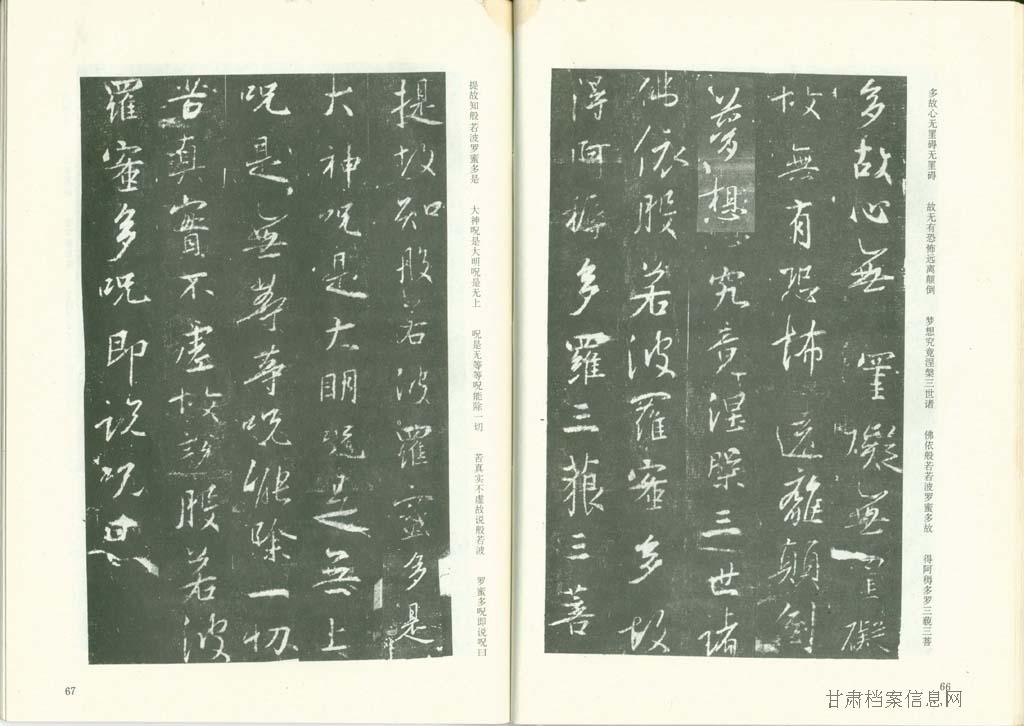 多故心无罣碍无罣碍 故无有恐怖远离颠倒 梦想究竟涅槃三世诸 佛依般若波罗蜜多故 得阿耨多罗三藐三菩
多故心無罣礙無罣礙
故無有恐怖遠離顛倒
夢想究竟涅槃三世諸
佛依般若波羅蜜多故
得阿耨多羅三藐三菩
66
提故知般若波罗蜜多是 大神呪是大明呪是无上 呪是无等等呪能除一切 苦真实不虚故说般若波 罗蜜多呪即说呪曰
提故知般若波羅蜜多是
大神呪是大明呪是無上
呪是無等等呪能除一切
苦真實不虛故說般若波
羅蜜多呪即說呪曰
67
甘肃档案信息网